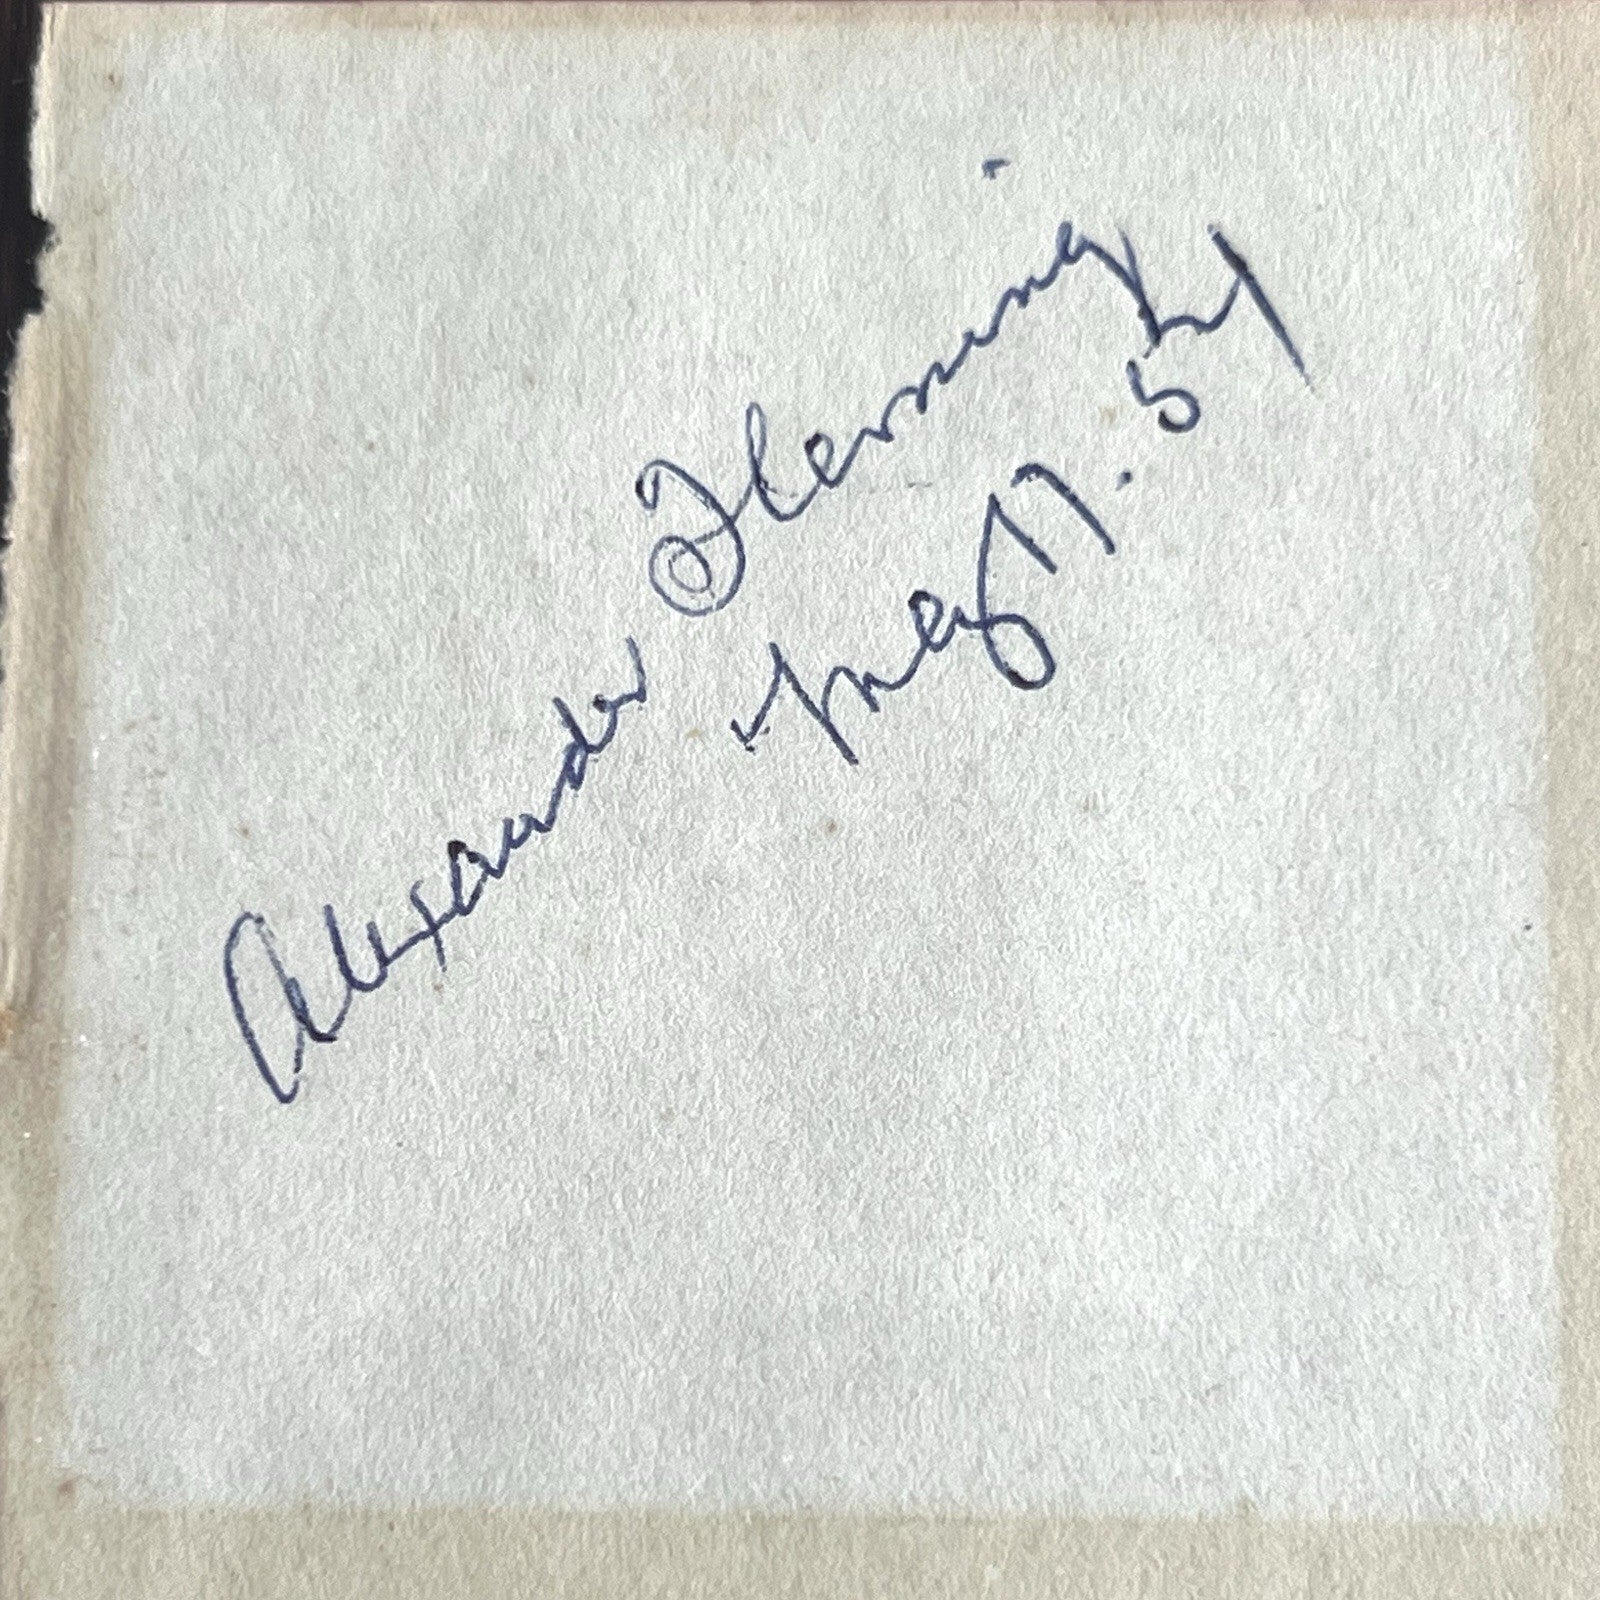 Alexander Fleming
May 17. 54